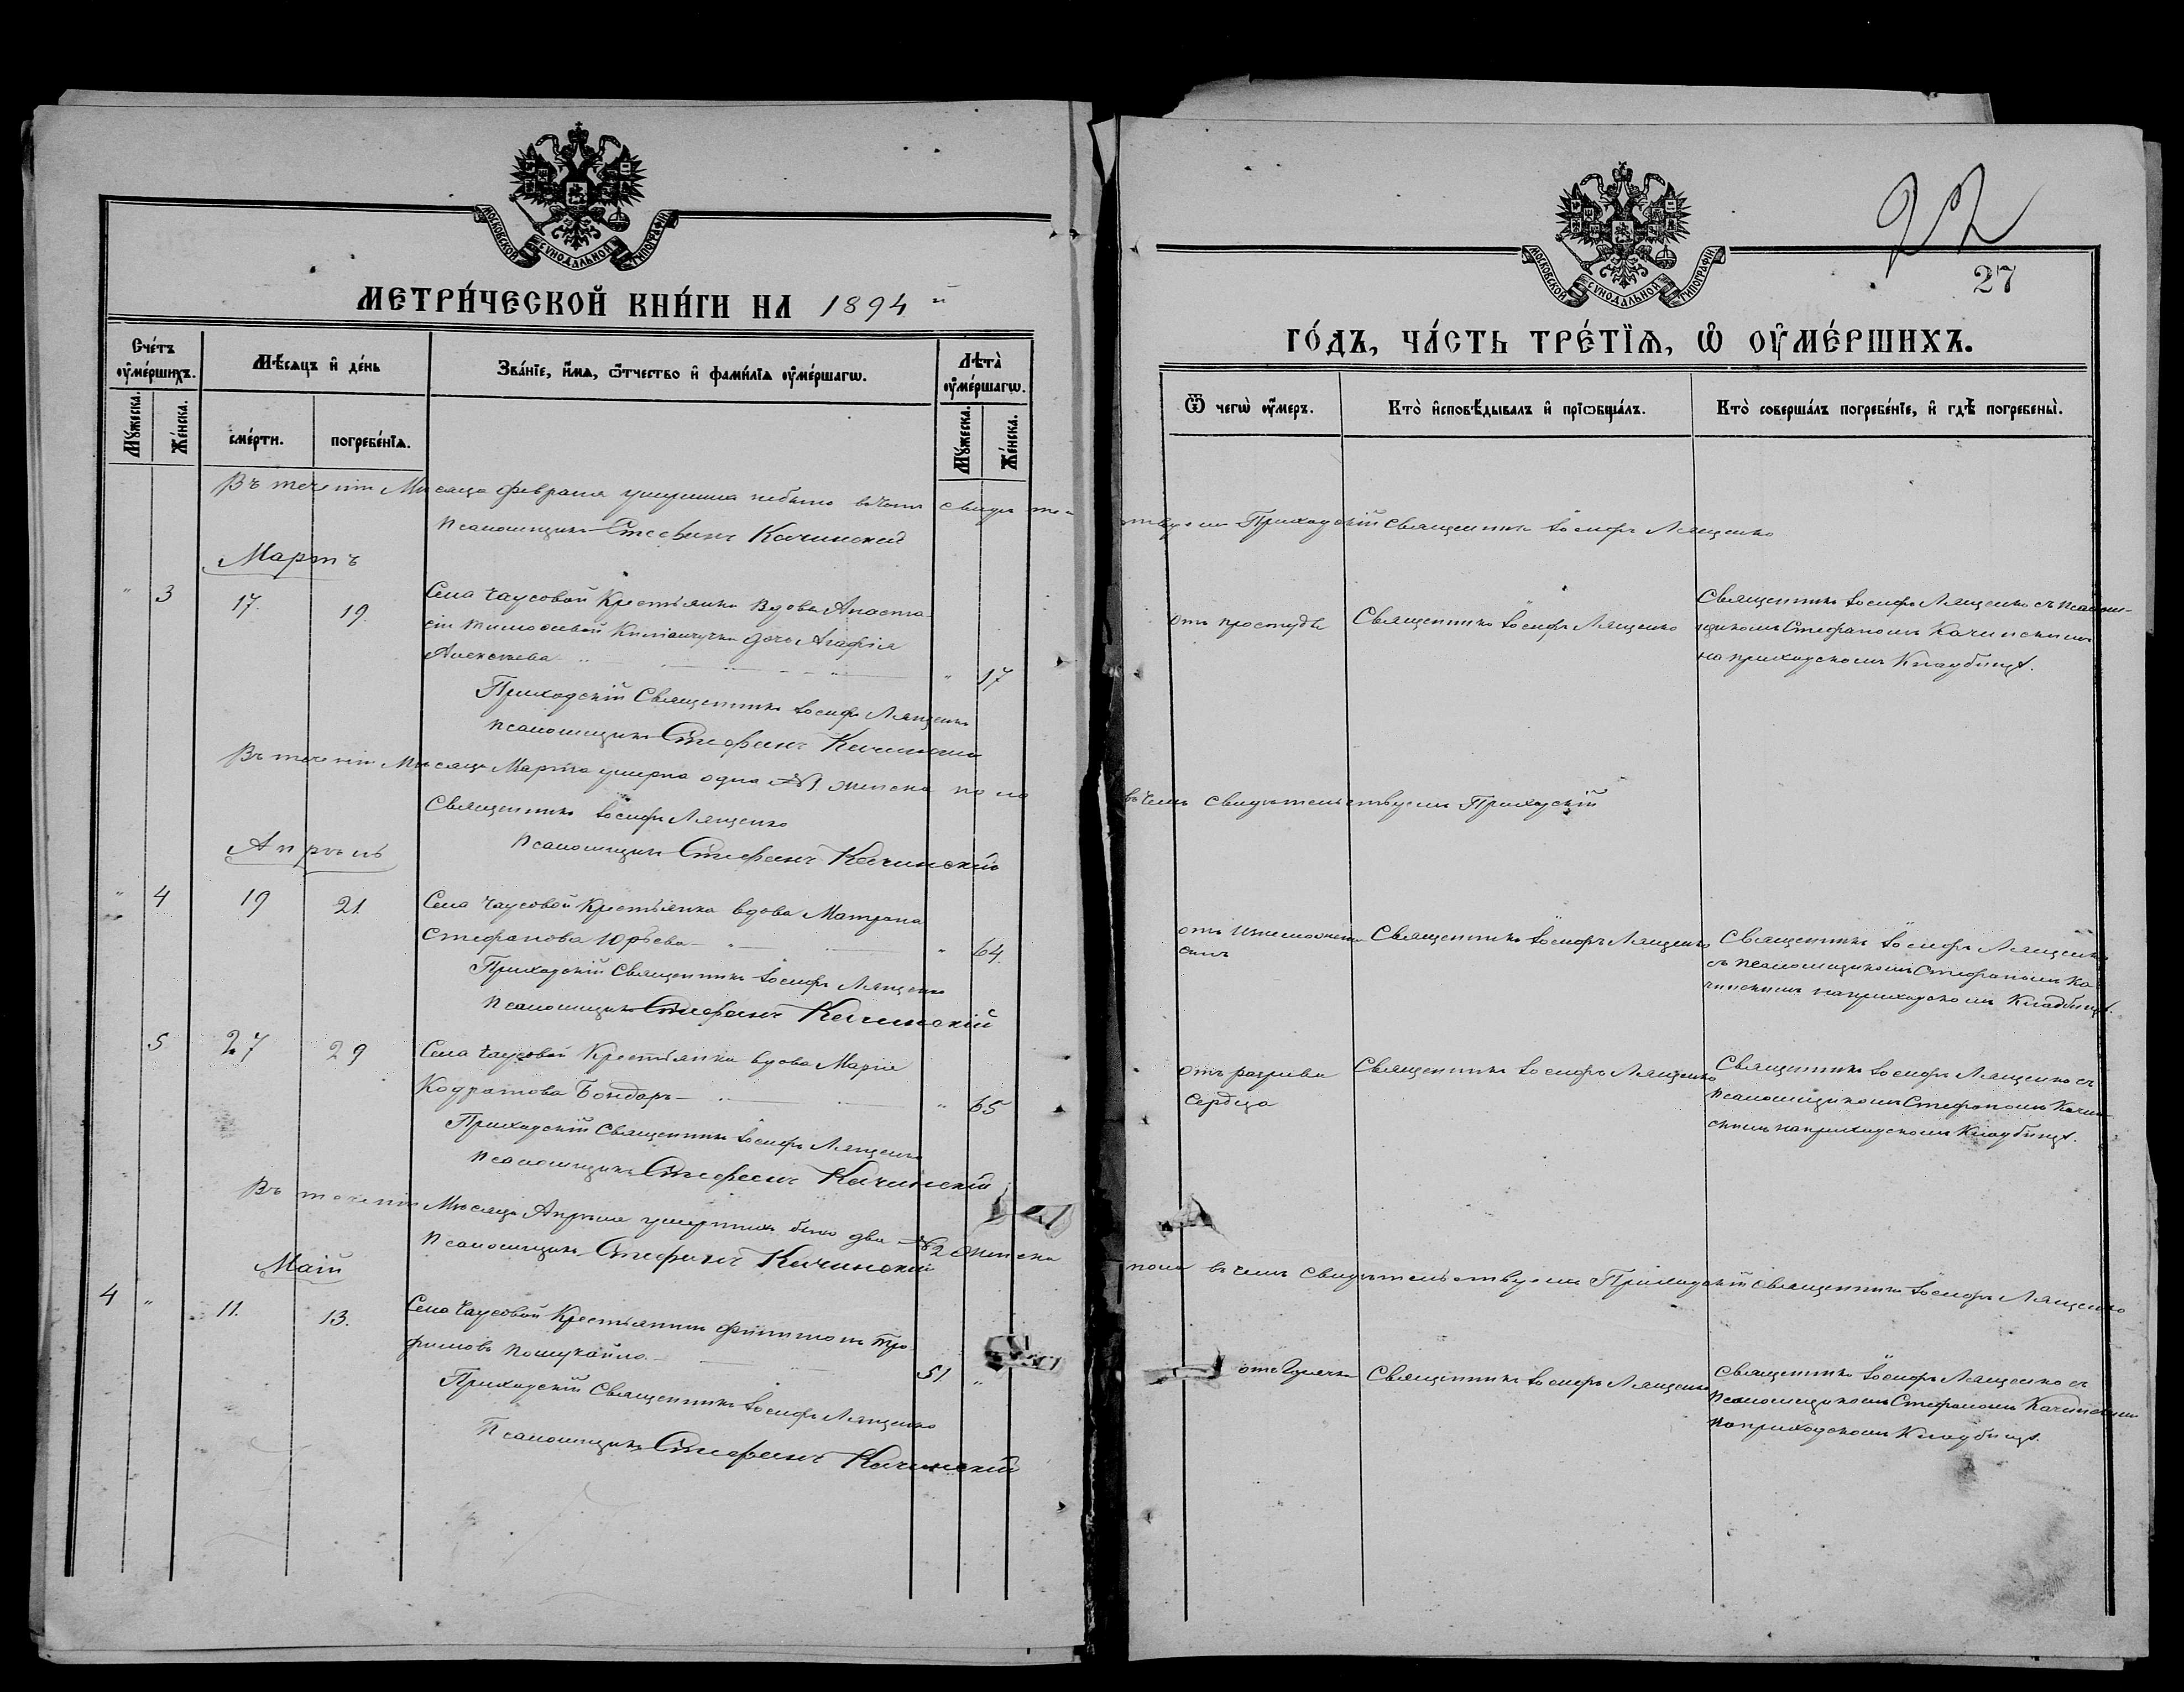 МОСКОВСКОЙ СУНОДАЛЬНОЙ ТИПОГРАФІИ
МЕТРИ́ЧЕСКОЙ КНИ́ГИ НА 1894 й
Сче́тъ ᲂу҆ме́ршихъ.
Мѣ́сяцъ и҆ де́нь
Зва́нїе, и҆́мѧ, ѻ҆́тчество и҆ фами́лїѧ ᲂу҆ме́ршагѡ.
Лѣта̀ ᲂу҆ме́ршагѡ.
Мꙋ́жеска.
Же́нска.
сме́рти.
погребе́нїѧ.
Мꙋ́жеска.
Же́нска.
Въ теченіи Мѣсяца Февраля умершихъ небыло въ чемъ свидѣтель
Псаломщикъ Стефанъ Качинскій
Мартъ
" 3 17. 19. Села Чаусовой Крестьянки Вдовы Анаста
сіи Тимофѣевой дочь Агафія
Алексѣева " 17
Приходскій Священникъ Іосифъ Лященко
Псаломщикъ Стефанъ Качинскій
Въ теченіи Мѣсяца Марта умерла одна №1 женска пола
Священникъ Іосифъ Лященко
Псаломщикъ Стефанъ Качинскій
Апрѣль
" 4 19 21. Села Чаусовой Крестьянка вдова Матрона
Стефанова Юрьева " 64.
Приходскій Священникъ Іосифъ Лященко
Псаломщикъ Стефанъ Качинскій
5 27 29 Села Чаусовой Крестьянка вдова Марія
Кодратова Бондарь " 65
Приходскій Священникъ Іосифъ Лященко
Псаломщикъ Стефанъ Качинскій
Въ теченіи Мѣсяца Апрѣля умершихъ было два №2 женска
Псаломщикъ Стефанъ Качинскій
Май
4 " 11. 13. Села Чаусовой Крестьянинъ Филимонъ Тро
фимовъ 51 "
Приходскій Священникъ Іосифъ Лященко
Псаломщикъ Стефанъ Качинскій
22
МОСКОВСКОЙ СУНОДАЛЬНОЙ ТИПОГРАФІИ
27
ГО́ДЪ, ЧА́СТЬ ТРЕ́ТЇѦ, Ѡ҆ ОУ҆МЕ́РШИХЪ.
Ѿ чегѡ̀ ᲂу҆́меръ.
Кто̀ и҆сповѣ́дывалъ и҆ прїѡбща́лъ.
Кто̀ соверша́лъ погребе́нїе, и҆ гдѣ̀ погребены̀.
ствуемъ Приходскій Священникъ Іосифъ Лященко
отъ простуды
Священникъ Іосифъ Лященко
Священникъ Іосифъ Лященко съ псалом-
щикомъ Стефаномъ Качинскимъ
на приходскомъ Кладбищѣ.
въ чемъ свидѣтельствуемъ Приходскій
отъ изнеможенія
силъ
Священникъ Іосифъ Лященко
Священникъ Іосифъ Лященко
съ псаломщикомъ Стефаномъ Ка
чинскимъ на приходскомъ Кладбищѣ.
отъ разрыва
сердца
Священникъ Іосифъ Лященко
Священникъ Іосифъ Лященко съ
псаломщикомъ Стефаномъ Качин
скимъ на приходскомъ Кладбищѣ.
пола въ чемъ свидѣтельствуемъ Приходскій Священникъ Іосифъ Лященко
отъ Горячки
Священникъ Іосифъ Лященко
Священникъ Іосифъ Лященко съ
псаломщикомъ Стефаномъ Качинскимъ
на приходскомъ Кладбищѣ.